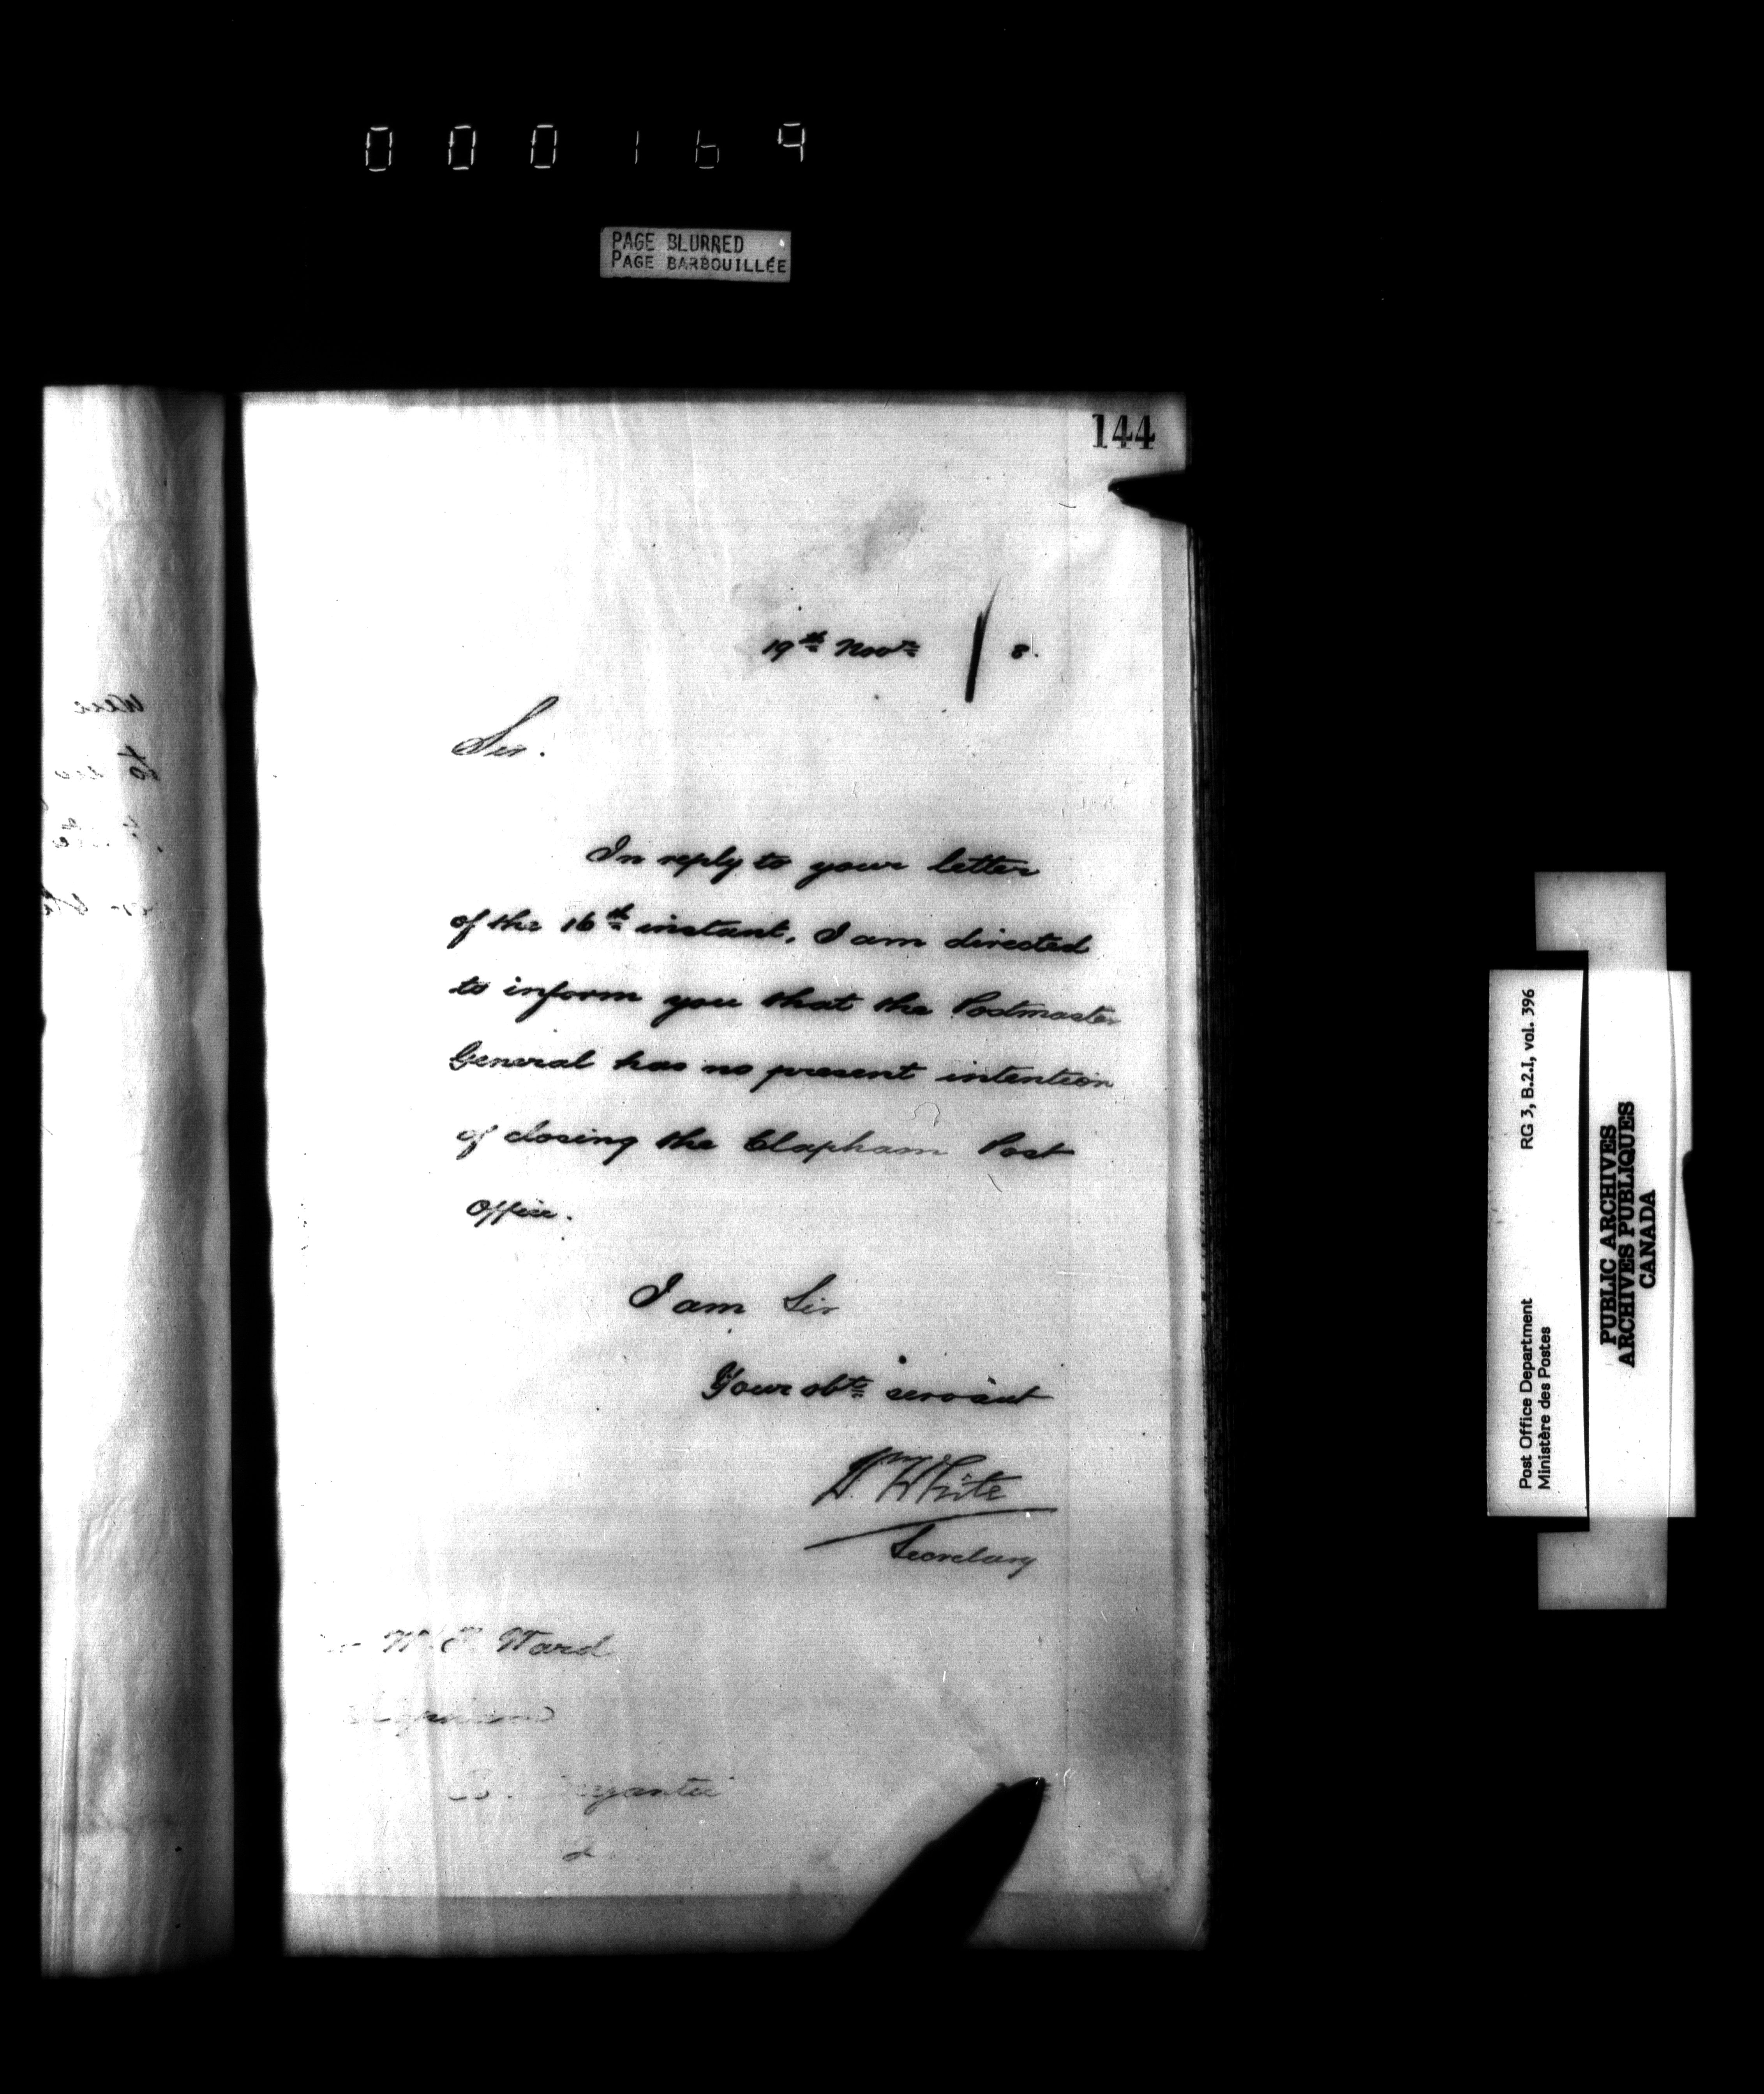 000169
PAGE BLURRED
PAGE BARBOUILLÉE
144
19th Novr / 8.
Sir.
In reply to your letter
of the 16th instant, I am directed
to inform you that the Postmaster
General has no present intention
of closing the Clapham Post
Office.
I am Sir
Your obt servant
Wm White
Secretary
Ward
Post Office Department
Ministère des Postes
RG 3, B.2.I, vol. 396
PUBLIC ARCHIVES
ARCHIVES PUBLIQUES
CANADA